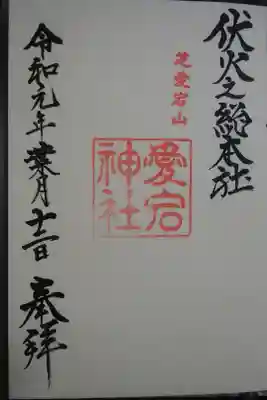 伏火之総本社
芝愛宕山
愛宕
神社
令和元年葉月十二日 奉拝